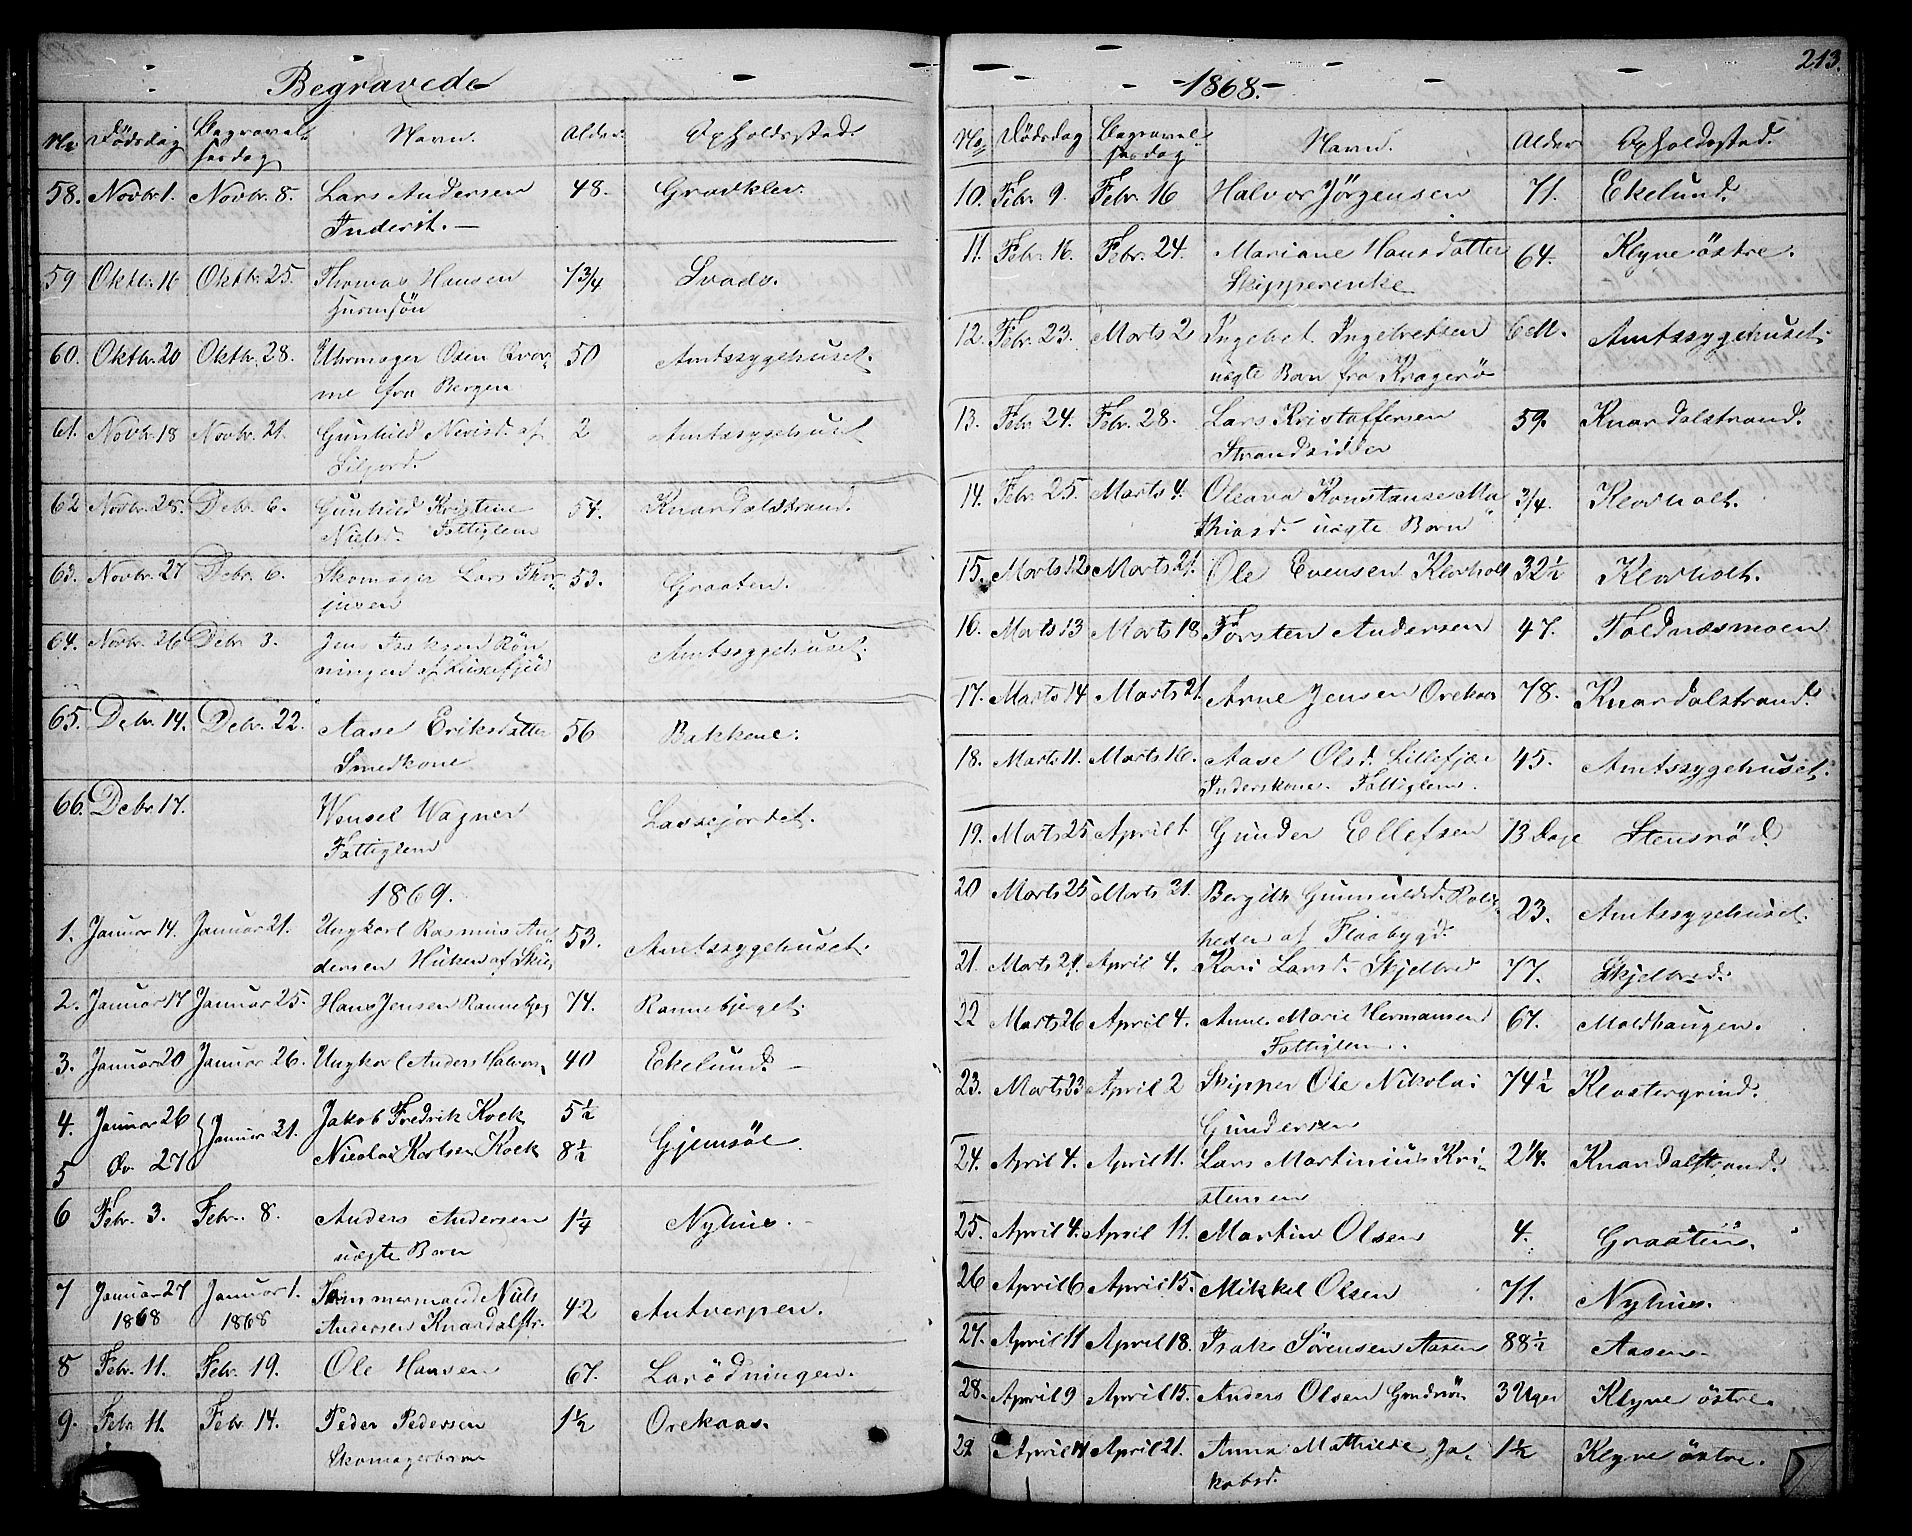 Begravede
No Dødsdag Begravelsesdag Navn. Alder. Opholdssted.
58. Novbr. 1. Novbr. 8. Lars Andersen 48. Gravklev.
Inderst. —
59 Oktbr. 16 Oktbr. 25. Thomas Hansen 1 3/4 Svads.
60. Oktbr. 20 Oktbr. 28. Uhrmager Osen 50 Amtssygehuset.
me fra Bergen
61. Novbr. 18 Novbr. 21. Gunhild af 2 Amtssygehuset
62 Novbr. 28. Debr. 6. Gunhild Kristine 54. Knardalstrand.
Nielsd. Fattiglem
63. Novbr. 27 Debr. 6. Skomager Lars Thor- 53. Graaten.
jusen
64. Novbr. 26 Debr. 3. Jens Isaksen Rön- Amtssygehuset.
ningen af
65. Debr. 14. Debr. 22. Aase Eriksdatter 56 Bakkene.
Smedkone
66. Debr. 17. Wensel Wagner Lassejordet.
Fattiglem
1869.
1. Januar 14. Januar 21. Ungkarl Rasmus An 53. Amtssygehuset.
dersen af
2. Januar 17 Januar 25. Hans Jensen 74. Rannebjeget.
3. Januar 20 Januar 26. Ungkarl Anders Halvors. 40 Ekelund. —
4. Januar 26 Januar 31. Jakob Fredrik Kock 5 1/2 Gjemsöe.
5 27 Nicolai Karlsen Kock 8 1/2
6 Febr. 3. Febr. 8. Anders Andersen 1 1/4 Nyhus. —
uægte Barn
7 Januar 27 Januar 1. Tømmermand Niels 42 Antverpen.
1868 1868 Andersen Knardalstr.
8 Febr. 11. Febr. 19. Ole Hansen 67. Larödningen.
9. Febr. 11. Febr. 14. Peder Pedersen 1 1/2 Orekaas.
Skomagerbarn
213.
-1868.-
No Dødsdag Begravelsesdag Navn. Alder Opholdssted.
10. Febr. 9. Febr. 16 Halvor Jörgensen 71. Ekelund.
11. Febr. 16. Febr. 24. Mariane Hansdatter 64. Klyve östre.
Skipperenke
12. Febr. 23. Marts 2 Ingebret Ingebretsen 6 M. Amtssygehuset.
uægte Barn fra Kragerö
13. Febr. 24. Febr. 28. Lars Kristoffersen 59. Knardalstrand.
Strandsidder
14. Febr. 25. Marts 4. Oleava Konstanse Ma 3/4. Klovholt.
thiasd. uægte Barn
15. Marts 12 Marts 21. Ole Evensen Klovholt 32 1/2 Klovholt.
16. Marts 13 Marts 18 Torsten Andersen 47. Foldnæsmoen
17. Marts 14 Marts 21. Arne Jensen Orekaas 78. Knardalstrand.
18. Marts 11. Marts 16. Aase Olsd. Lillefjære 45. Amtssygehuset.
Inderskone. Fattiglem.
19. Marts 25 April 1. Gunder Ellefsen 13 Dage Stensrød.
20 Marts 25 Marts 31. Bergith 23. Amtssygehuset.
heden af Flaabygd.
21. Marts 29. April 4. Kari Larsd. Skjelbred 77. Skjelbred.
22 Marts 26 April 4. Anne Marie Hermansen 67. Moldhaugen.
Fattiglem.
23. Marts 23 April 2 Skipper Ole Nikolai 74 1/2 Klostergrind.
Gundersen
24. April 4. April 11. Lars Martinius Kri- 2 1/4. Knardalstrand.
stensen
25. April 4. April 11. Martin Olsen 4. Graaten.
26 April 6 April 15. Mikkel Olsen 71. Nyhus.
27. April 11 April 18. Isak Sørensen Aasen 88 1/2 Aasen.
28. April 9 April 15. Anders Olsen 3 Uger Klyve östre.
29 April 14 April 21. Anna Mathilde Ja- 1 1/2 Klyve östre.
kobsd.